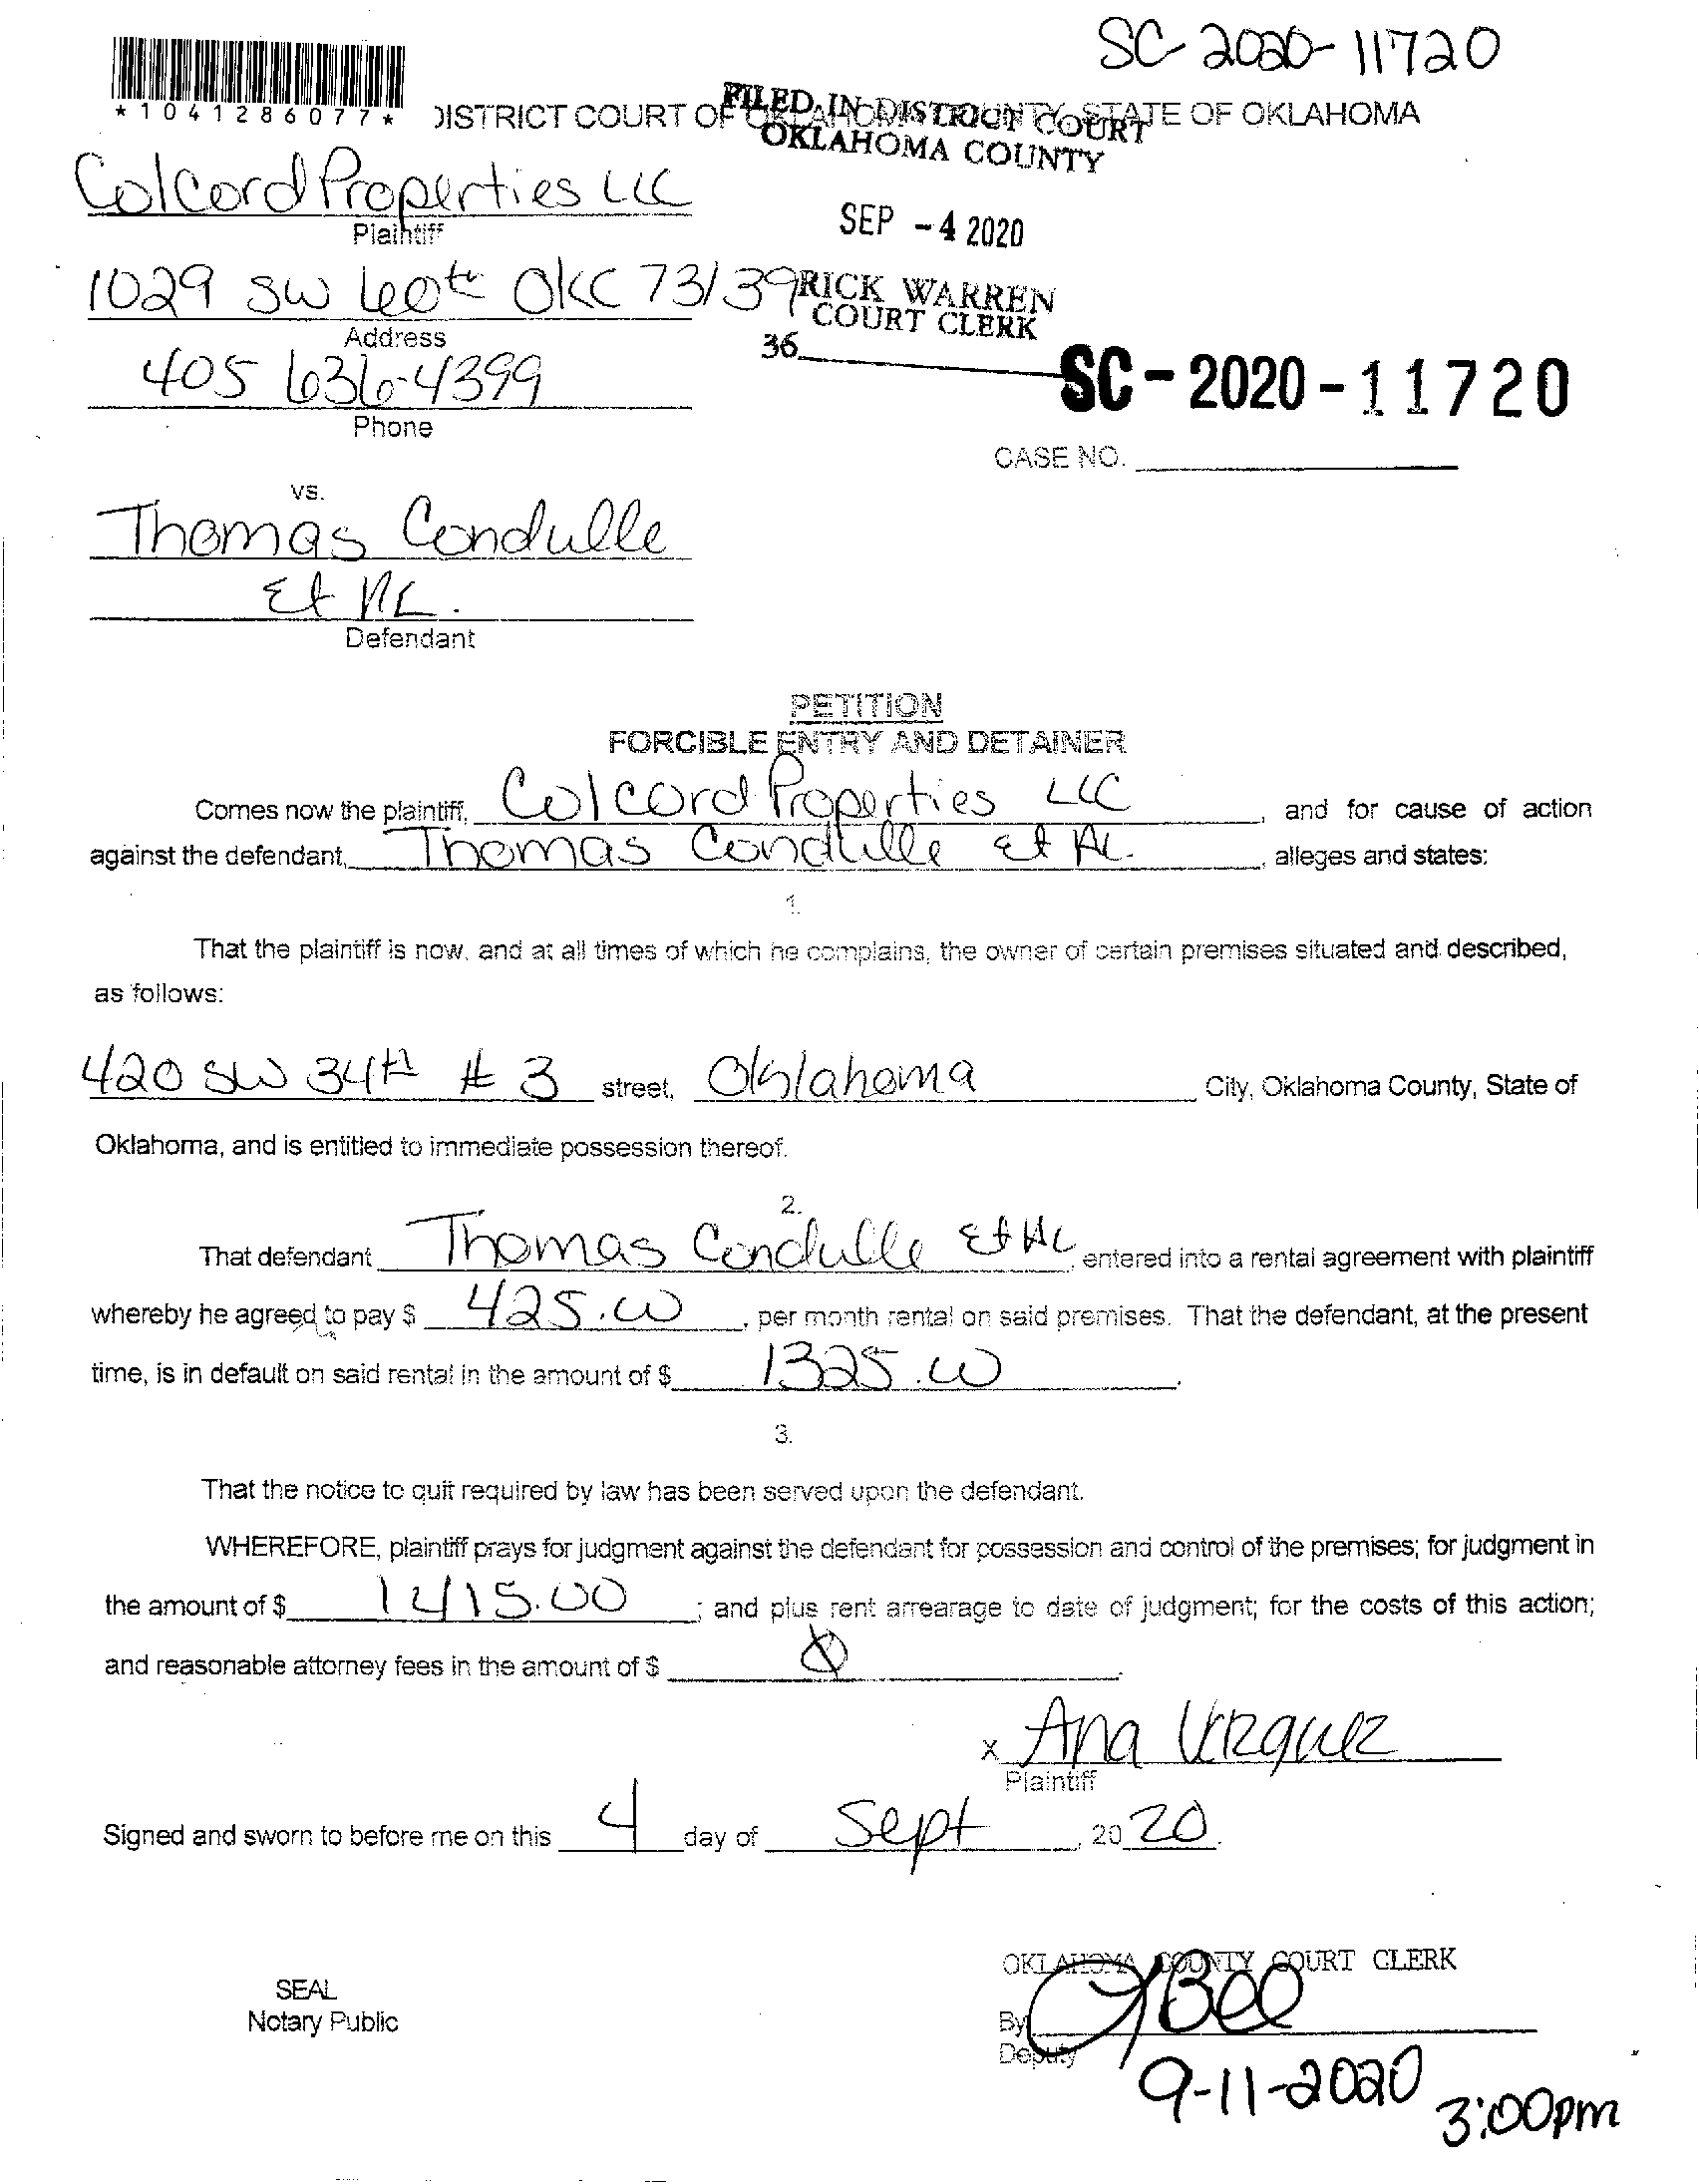 SC-2020-11720
*1041286077*
DISTRICT COURT OF OKLAHOMA COUNTY, STATE OF OKLAHOMA
FILED IN DISTRICT COURT
OKLAHOMA COUNTY
Colcord Properties LLC
Plaintiff
SEP -4 2020
1029 SW 60th OKC 73139
RICK WARREN
COURT CLERK
Address
36
405 636-4399
Phone
SC-2020-11720
CASE NO.
vs.
Thomas Condulle
Et AL.
Defendant
PETITION
FORCIBLE ENTRY AND DETAINER
Comes now the plaintiff, Colcord Properties LLC, and for cause of action
against the defendant, Thomas Condulle Et AL., alleges and states:
1.
That the plaintiff is now, and at all times of which he complains, the owner of certain premises situated and described,
as follows:
420 SW 34th # 3 street, Oklahoma City, Oklahoma County, State of
Oklahoma, and is entitled to immediate possession thereof.
2.
That defendant Thomas Condulle Et AL, entered into a rental agreement with plaintiff
whereby he agreed to pay $ 425.00, per month rental on said premises. That the defendant, at the present
time, is in default on said rental in the amount of $ 1325.00.
3.
That the notice to quit required by law has been served upon the defendant.
WHEREFORE, plaintiff prays for judgment against the defendant for possession and control of the premises; for judgment in
the amount of $ 1415.00; and plus rent arrearage to date of judgment; for the costs of this action;
and reasonable attorney fees in the amount of $
x Ana
Plaintiff
Signed and sworn to before me on this 4 day of Sept, 2020.
OKLAHOMA COUNTY COURT CLERK
SEAL
Notary Public
By
Deputy
9-11-2020 3:00pm